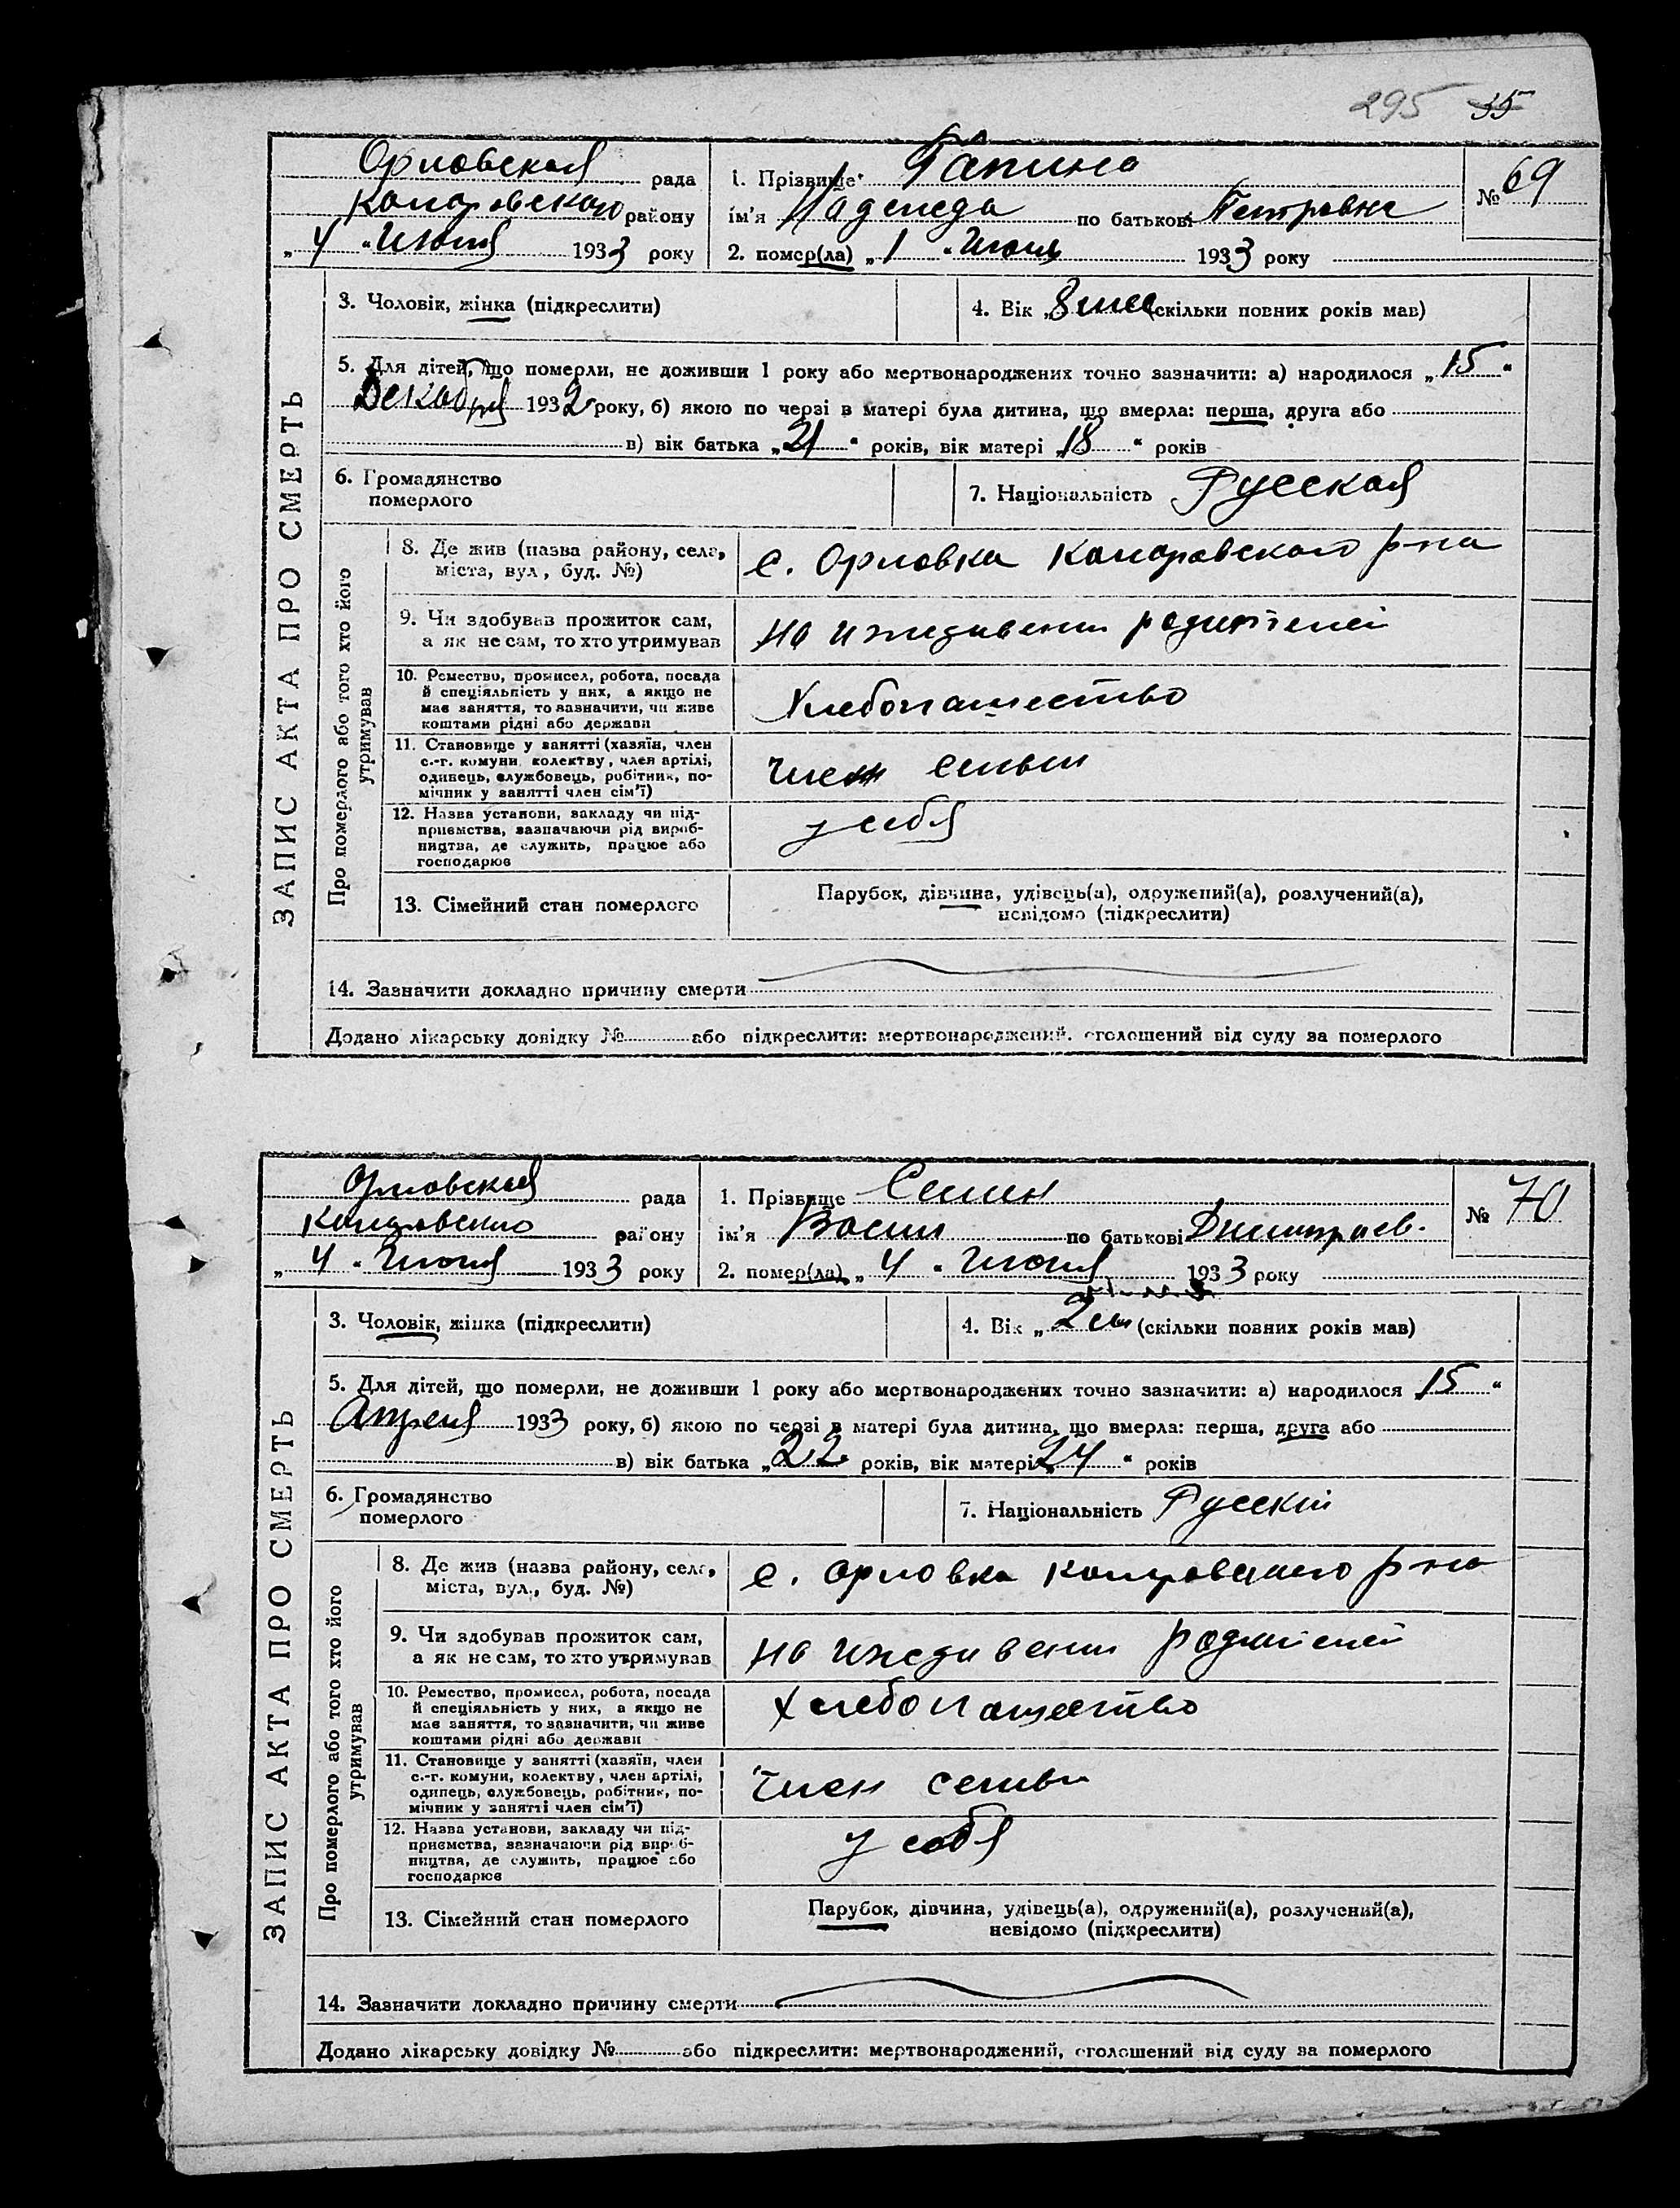 295 35
Орловская рада
Комаровского району
„4“ Июля 1933 року
1. Прізвище Гапина
ім'я Надежда по батькові Петровна
2. помер(ла) „1“ 1933 року
№ 69
ЗАПИС АКТА ПРО СМЕРТЬ
3. Чоловік, жінка (підкреслити)
4. Вік „8 мес (скільки повних років мав)
5. Для дітей, що померли, не доживши 1 року або мертвонароджених точно зазначити: а) народилося „15“
Декабря 1932 року, б) якою по черзі в матері була дитина, що вмерла: перша, друга або
в) вік батька „21“ років, вік матері „18“ років
6. Громадянство
померлого
7. Національність Русская
Про померлого або того хто його
утримував
8. Де жив (назва району, села,
міста, вул., буд. №)
с. Орловка Комаровского р-на
9. Чи здобував прожиток сам,
а як не сам, то хто утримував
на иждивении родителей
10. Ремество, промисел, робота, посада
й спеціяльність у них, а якщо не
має заняття, то зазначити, чи живе
коштами рідні або держави
Хлебопашество
11. Становище у занятті (хазяїн, член
с.-г. комуни, колектву, член артілі,
одинець, службовець, робітник, по-
мічник у занятті член сім'ї)
член семьи
12. Назва установи, закладу чи під-
приємства, зазначаючи рід вироб-
ництва, де служить, працює або
господарює
у себя
13. Сімейний стан померлого
Парубок, дівчина, удівець(а), одружений(а), розлучений(а),
невідомо (підкреслити)
14. Зазначити докладно причину смерти
Додано лікарську довідку № або підкреслити: мертвонароджений, оголошений від суду за померлого
Орловская рада
Комаровского району
„4“ Июля 1933 року
1. Прізвище Семин
ім'я Васил по батькові Димитриев.
2. помер(ла) „4“ Июля 1933 року
№ 70
ЗАПИС АКТА ПРО СМЕРТЬ
3. Чоловік, жінка (підкреслити)
4. Вік „2 (скільки повних років мав)
5. Для дітей, що померли, не доживши 1 року або мертвонароджених точно зазначити: а) народилося 15“
Апреля 1933 року, б) якою по черзі в матері була дитина, що вмерла: перша, друга або
в) вік батька „22 років, вік матері „24“ років
6. Громадянство
померлого
7. Національність Русскій
Про померлого або того хто його
утримував
8. Де жив (назва району, села,
міста, вул., буд. №)
с. Орловка Комаровского р-на
9. Чи здобував прожиток сам,
а як не сам, то хто утримував
на иждивении родителей
10. Ремество, промисел, робота, посада
й спеціяльність у них, а якщо не
має заняття, то зазначити, чи живе
коштами рідні або держави
Хлебопашество
11. Становище у занятті (хазяїн, член
с.-г. комуни, колектву, член артілі,
одинець, службовець, робітник, по-
мічник у занятті член сім'ї)
член семьи
12. Назва установи, закладу чи під-
приємства, зазначаючи рід вироб-
ництва, де служить, працює або
господарює
у себя
13. Сімейний стан померлого
Парубок, дівчина, удівець(а), одружений(а), розлучений(а),
невідомо (підкреслити)
14. Зазначити докладно причину смерти
Додано лікарську довідку № або підкреслити: мертвонароджений, оголошений від суду за померлого